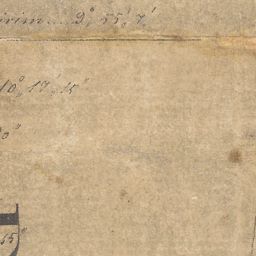 irim.... 9° 55' 7'
10° 17' 15"
0"
55"